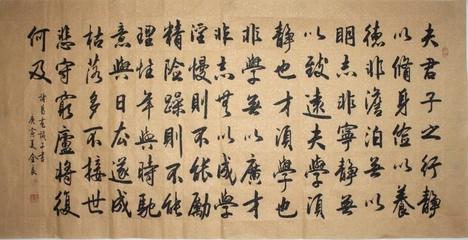 夫君子之行靜
以脩身儉以養
德非澹泊無以
明志非寧靜無
以致遠夫學須
靜也才須學也
非學無以廣才
非志無以成學
淫慢則不能勵
精險躁則不能
理性年與時馳
意與日去遂成
枯落多不接世
悲守窮廬將復
何及
諸葛亮誡子書
庚寅夏